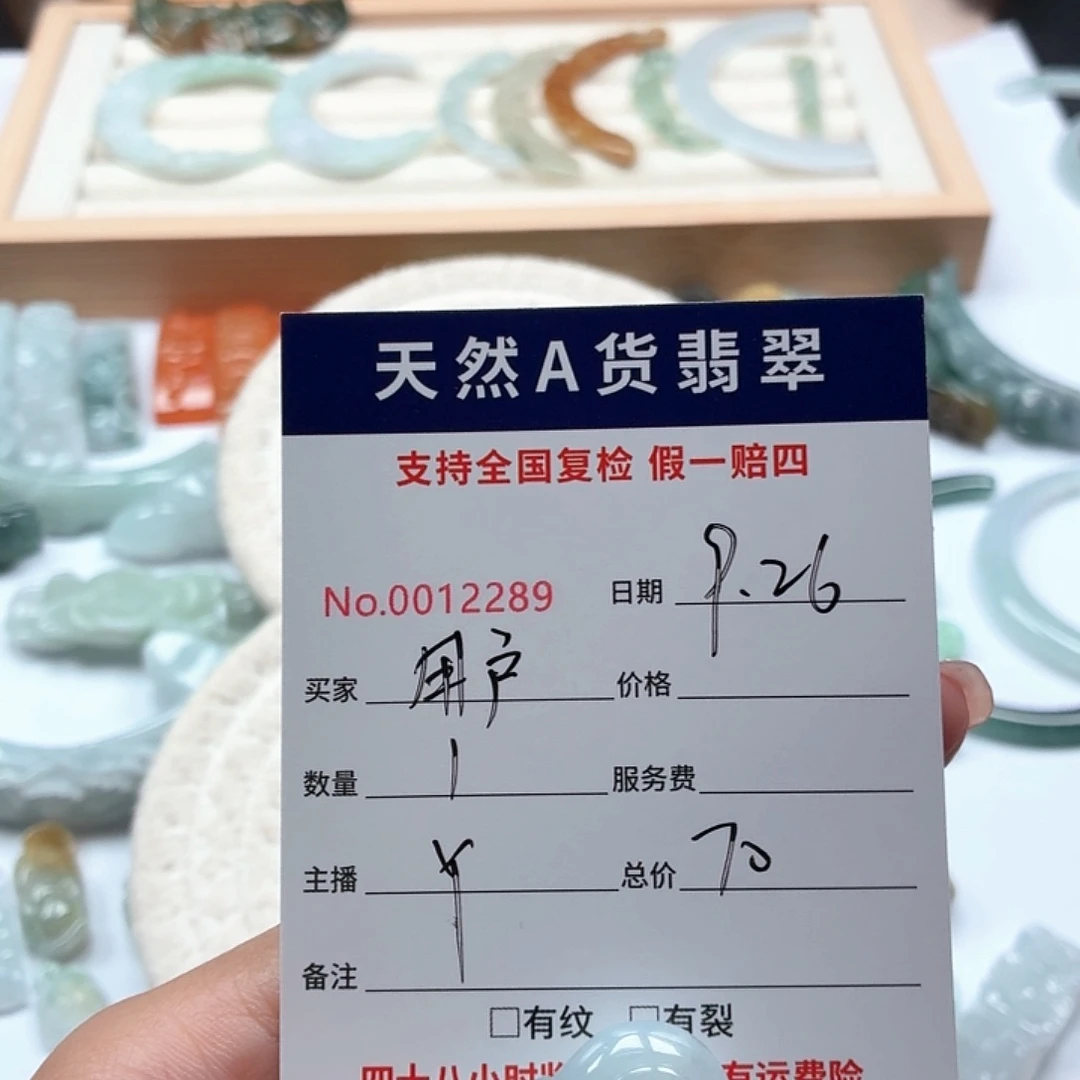 天然A货翡翠
支持全国复检 假一赔四
No.0012289 日期 9.26
买家 用户 价格
数量 1 服务费
主播 总价 70
备注
□有纹 □有裂
四十八小时 有运费险